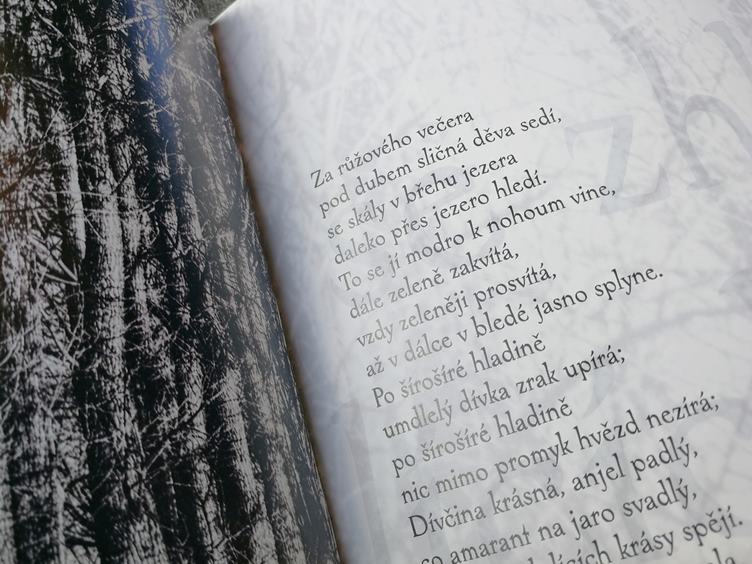 Za růžového večera
pod dubem sličná děva sedí,
se skály v břehu jezera
daleko přes jezero hledí.
To se jí modro k nohoum vine,
dále zeleně zakvítá,
vzdy zeleněji prosvítá,
až v dálce v bledé jasno splyne.
Po šírošíré hladině
umdlelý dívka zrak upírá;
po šírošíré hladině
nic mimo promyk hvězd nezírá;
Dívčina krásná, anjel padlý,
co amarant na jaro svadlý,
krásy spějí.